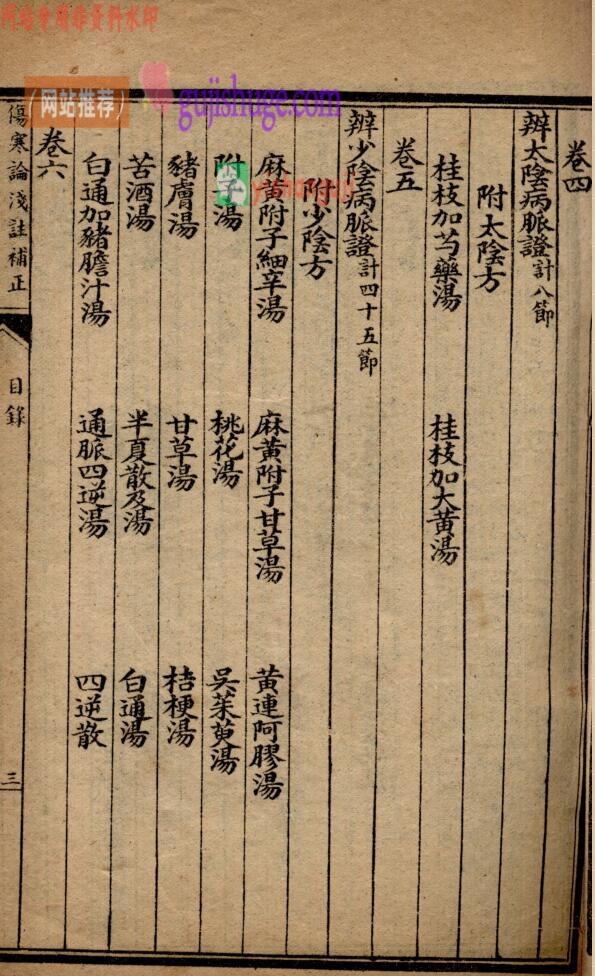 卷四
辨太陰病脈證計八節
附太陰方
桂枝加芍藥湯 桂枝加大黃湯
卷五
辨少陰病脈證計四十五節
附少陰方
麻黃附子細辛湯 麻黃附子甘草湯 黃連阿膠湯
附子湯 桃花湯 吳茱萸湯
豬膚湯 甘草湯 桔梗湯
苦酒湯 半夏散及湯 白通湯
白通加豬膽汁湯 通脈四逆湯 四逆散
卷六
傷寒論淺註補正
目錄
三
(网站推荐)
gujishuge.com